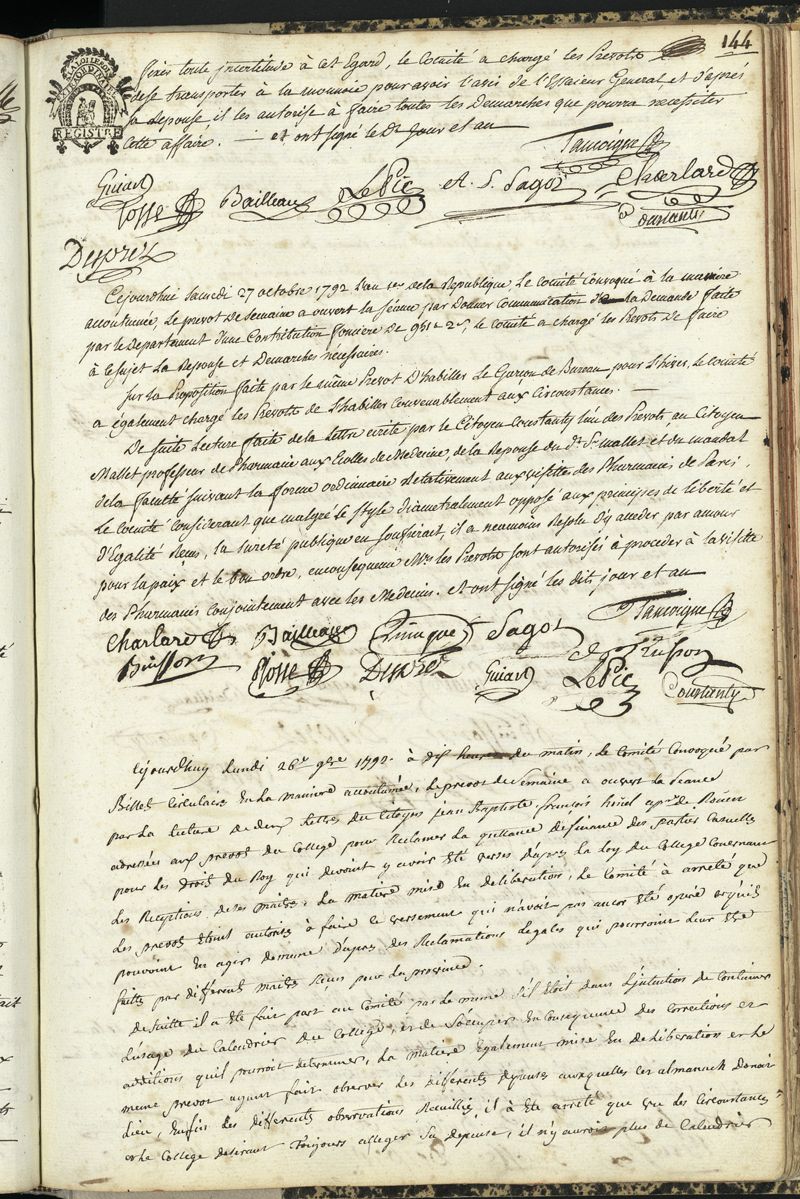 144
LA LOI LE ROI
EXTRAORDINAIRE
REGISTRE
fixer toute incertitude à cet Egard, le Comité a chargé les Prevots
de se transporter à la monnoie pour avoir l'avis de l'Essaieur General, et d'après
sa Reponse il les autorise à faire toutes les Demarches que pourra necessiter
cette affaire. — et ont signé le Dt Jour et an
Tancoigne
Guiart Bailleau LePic A. S. Sagot Charlard
Rosse Constanty
Desprez
Cejourdhui Samedi 27 octobre 1792 L'an 1er de la Republique Le Comité Convoqué à la maniere
accoutumée, Le prevot de Semaine a ouvert la Séance par Donner Communication de la Demande faite
par le Departement d'une Contribution fonciere de , le Comité a chargé les Prevots de faire
à ce Sujet La Reponse et Demarches nécessaires.
Sur la Proposition faite par le même Prevot D'habiller Le Garcon de Bureau pour L'hiver, le Comité
a également chargé les Prevots de L'habiller Convenablement aux Circonstances. —
De suite Lecture faite de la Lettre écrite par le Citoyen Constanty l'un des Prevots, au Citoyen
Mallet professeur de Pharmacie aux Ecolles de Medecine, de la Reponse du Dt Sr Mallet et du mandat
de la faculté suivant la forme ordinnaire Relativement aux visittes des Pharmacies de Paris,
Le Comité Considerant que malgré le Style diametralement opposé aux principes de liberté et
d'Egalité Reçus, la sureté publique en souffrirait, il a neamoins Resolu D'y acceder par amour
pour la paix et le bon ordre, en consequence Mrs les Prevots sont autorisés à proceder à la visitte
des Pharmacies Conjointement avec les Medecins. Et ont signé les dits jour et an
Charlard Bailleau Sagot Tancoigne
Buisson Rosse Desprez Guiart LePic Trusson Constanty
Cejourdhuy Lundi 26e 9bre 1792. à dix heures du matin, le Comité Convoqué par
Billet Circulaire En La Maniere accoutumée, Le prevot de Semaine a ouvert La Seance
par La Lecture de deux Lettres du Citoyen jean Baptiste françois apre de Roüen
adressées aux prevots du College pour Reclamer La quittance de finance des parties Casuelles
pour les Droits du Roy qui devoient y avoir Eté versés D'apres La loy du College Concernant
Les Receptions de ses Maitres, La matiere mise En deliberation, Le Comité à arreté que
Les prevots Etant autorisés à faire ce versement qui n'avoit pas encor Eté operé et qu'ils
pouvoient En agir de meme D'apres Des Reclamations Legales qui pourroient Leur Etre
faites par differents maitres Reçus pour La province.
De suitte il a Eté fait part au Comité par Le meme s'il Etoit dans L'jntention de Continuer
L'usage du Calendrier du College, et de S'occuper En Consequence des Corrections et
additions qu'il pourroit determiner, La Matiere Egalement mise En deliberation et le
meme prevot ayant fait observer Les differentes depenses auxquelles cet almanach Donnoit
Lieu, Enfin Des differentes observations Recueillies, il à Eté arreté que vu Les Circonstances
et le College desirant Toujours alleger Sa depense, il n'y auroit plus de Calendrier